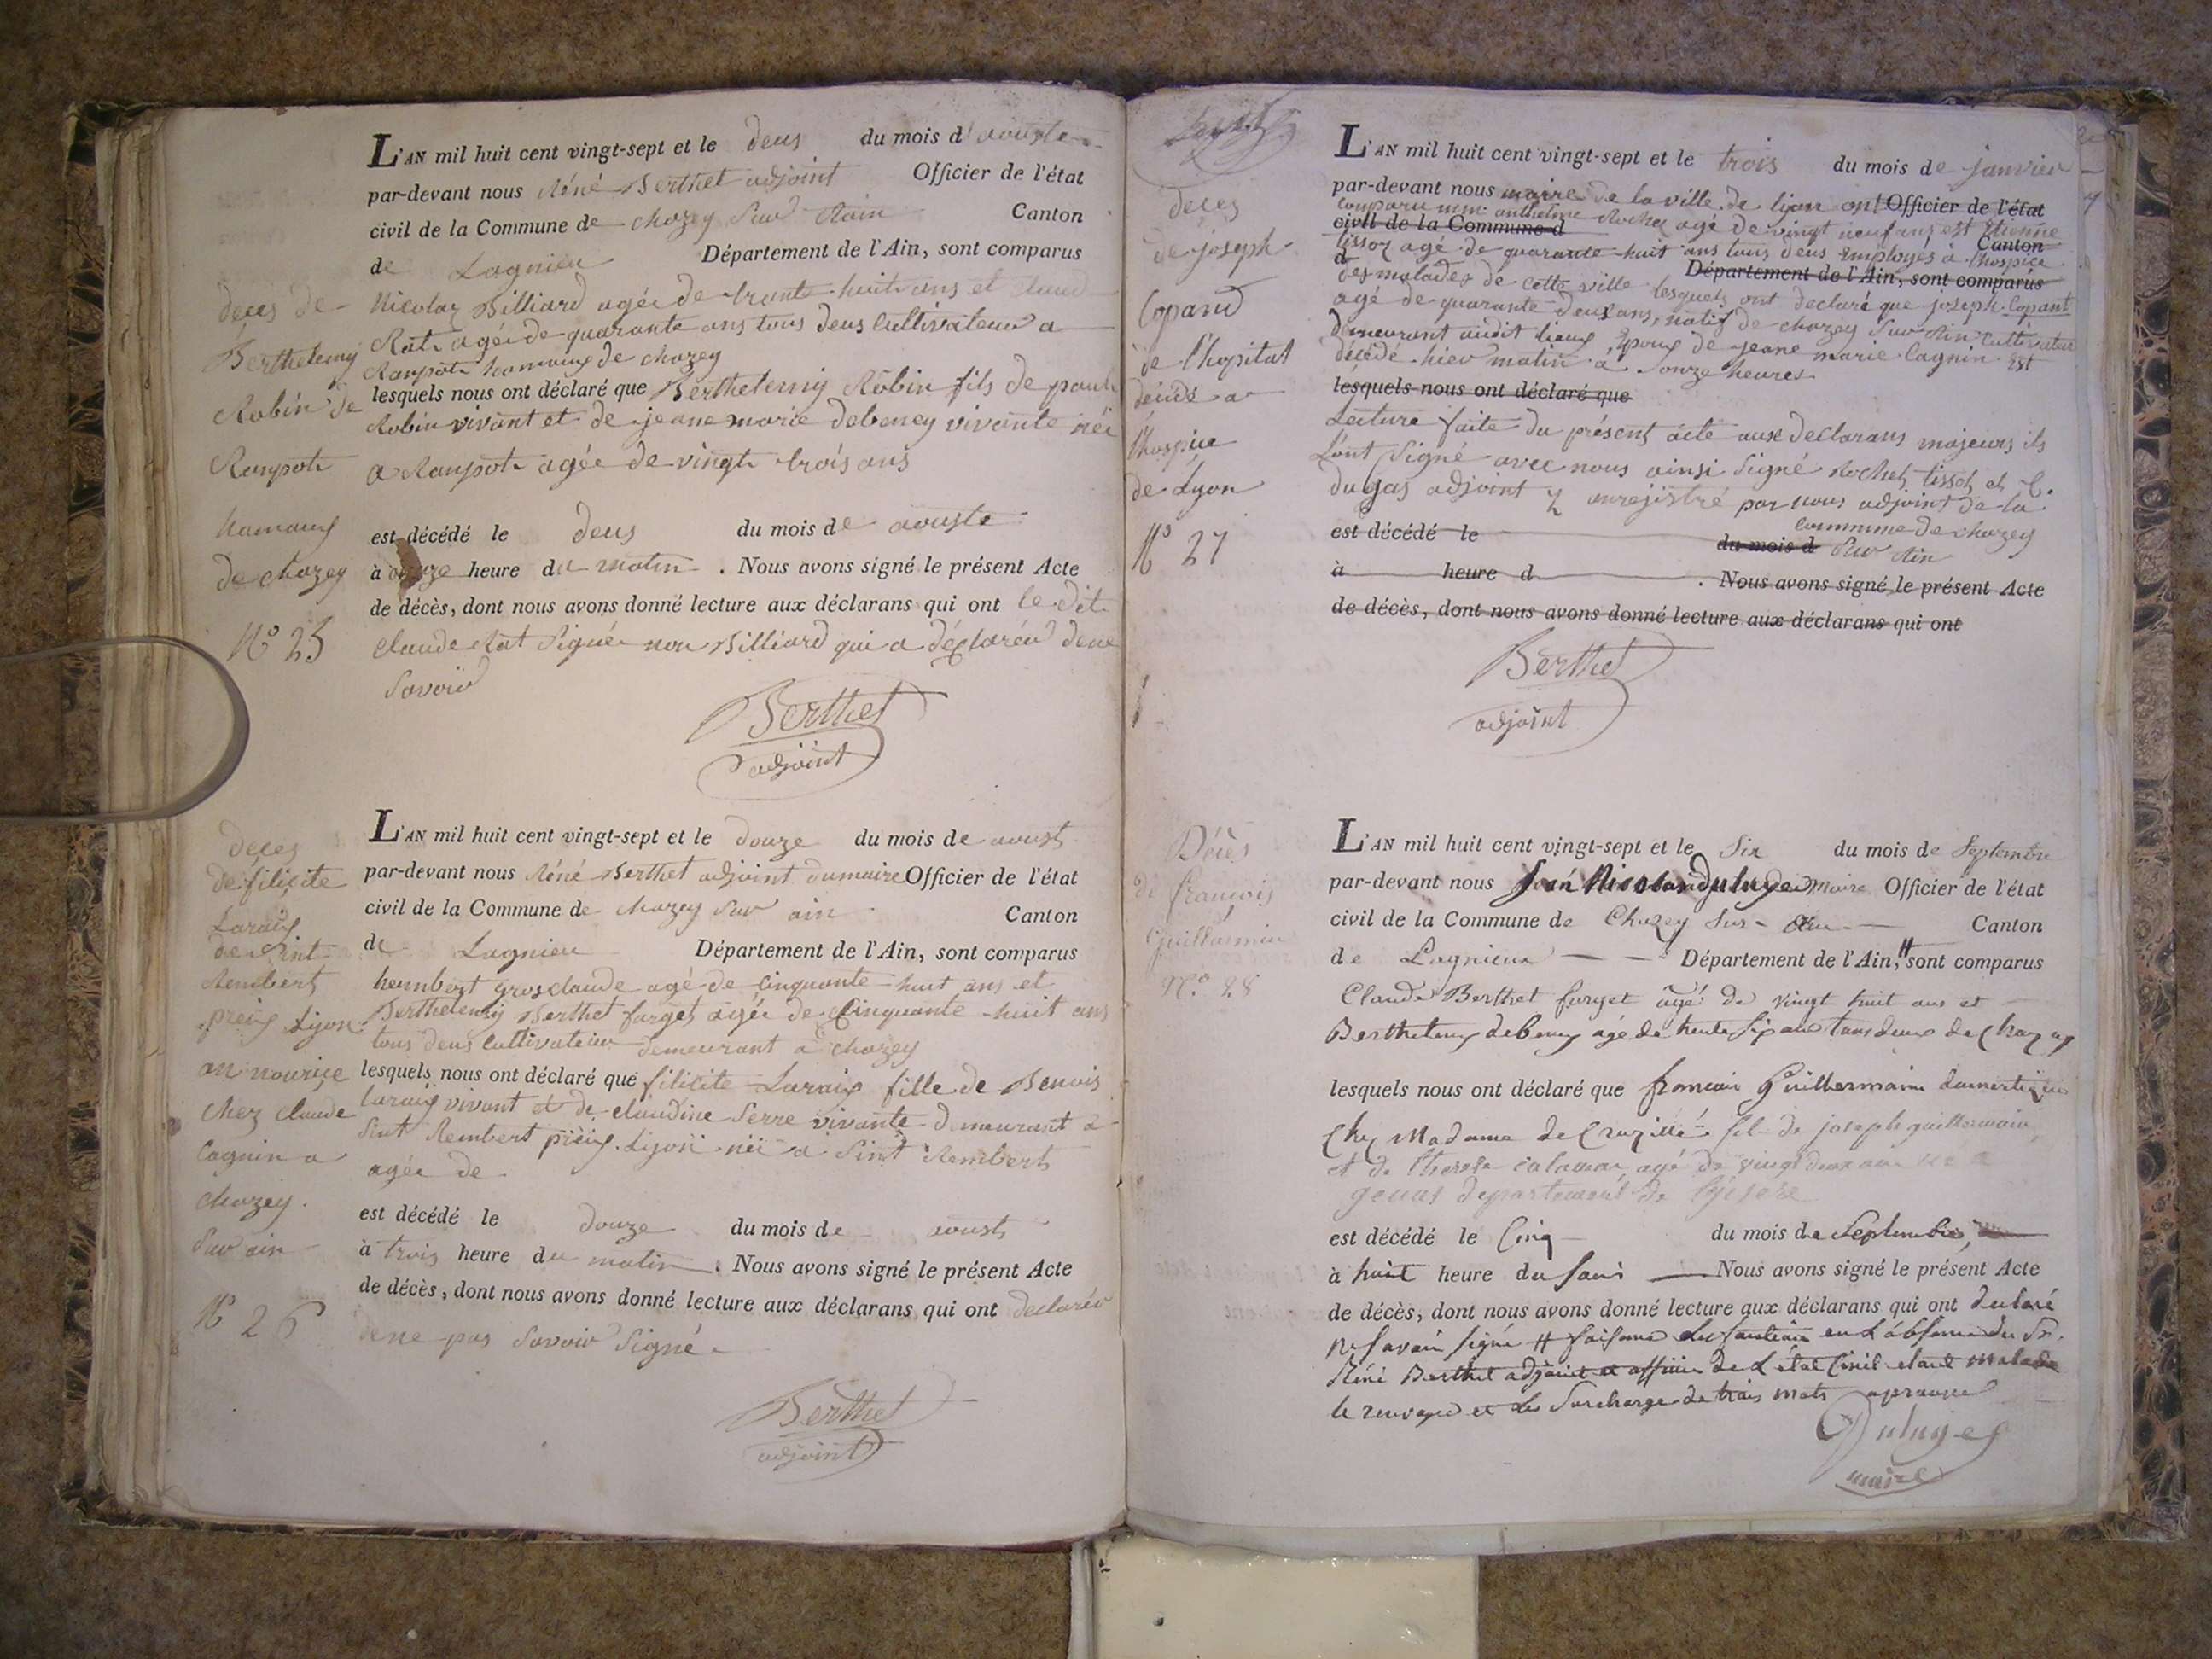 L'AN mil huit cent vingt-sept et le deus du mois d'aouste
par-devant nous Réné Berthet adjoint Officier de l'état
civil de la Commune de chazey Sur Rain Canton
de Lagnieu Département de l'Ain, sont comparus
Nicolas Billiard agée de trante huit ans et claud
Rat agée de quarante ans tous deus Cultivateur a
Ranpot hamaux de chazey
lesquels nous ont déclaré que Berthelemy Robin fils de
Robin vivant et de jeane marie debeney vivante néé
a Ranpot agée de vingt trois ans
est décédé le deus du mois de aouste
à onze heure du matin. Nous avons signé le présent Acte
de décès, dont nous avons donné lecture aux déclarans qui ont le dit
claude Rat Signée non Billiard qui a déclaréé dene
Savoir
Berthet
adjoint
deces de
Berthelemy
Robin de
Ranpot
hamaux
de chazey
N° 25
L'AN mil huit cent vingt-sept et le douze du mois de aoust
par-devant nous Réné Berthet adjoint dumaire Officier de l'état
civil de la Commune de chazey Sur ain Canton
de Lagnieu Département de l'Ain, sont comparus
humbert grosclaude agé de Cinquante huit ans et
Berthelemy Berthet farget agée de Cinquante huit ans
tous deus Cultivateur demeurant a chazey
lesquels nous ont déclaré que filicite Laraix fille de Benois
laraix vivant et de claudine Serre vivante demeurant a
Sint Rembert préis Lyon néé a Sint Rembert
agée de
est décédé le douze du mois de aoust
à trois heure du matin. Nous avons signé le présent Acte
de décès, dont nous avons donné lecture aux déclarans qui ont declaréé
dene pas Savoir Signé
Berthet
adjoint
deces
de filicite
Laraix
de Sint
Rembert
préis Lyon
an nourice
Chez claude
Cagnin a
Chazey
Sur ain
N° 26
L'AN mil huit cent vingt-sept et le trois du mois de janvier
par-devant nous maire de la ville de lion ont Officier de l'état
comparu anthelme Rochet agé de vingt neuf ans est Etienne
civil de la Commune d Canton
tissot agé de quarante-huit ans tous deus Employés à l'hospice
d Département de l'Ain, sont comparus
des malades de cette ville lesquels ont declaré que joseph Copant
agé de quarante deux ans, natif de chazey Sur Ain Cultivateur
demeurant audit lieux, Epoux de jeane marie Cagnin est
décédé hier matin à onze heures
lesquels nous ont déclaré que
Lecture faite du présent acte aux declarans majeurs ils
L'ont Signé avec nous ainsi Signé Rochet, tissot, et C.
dugas adjoint enregistré par nous adjoint de la
commune de chazey
est décédé le du mois d Sur Ain
à heure d . Nous avons signé le présent Acte
de décès, dont nous avons donné lecture aux déclarans qui ont
Berthet
adjoint
deces
de joseph
Copand
de l'hopital
décidé a
l'hospice
de Lyon
N° 27
L'AN mil huit cent vingt-sept et le Six du mois de Septembre
par-devant nous Jean Nicolas maire Officier de l'état
civil de la Commune de Chazey Sur-Ain Canton
de Lagnieux Département de l'Ain, sont comparus
Claude Berthet farget âgé de vingt huit ans et
Berthelemy debeney agé de trente six ans tous deux de Chazey
lesquels nous ont déclaré que francois Guillermain domestique
Chez Madame de Cruzillé fils de joseph guillermain
et de therese agé de vingt deux ans né a
genas departement de l'jsere
est décédé le Cinq du mois de Septembre
à huit heure du soir Nous avons signé le présent Acte
de décès, dont nous avons donné lecture aux déclarans qui ont declaré
ne savoir signé faisant les fonctions en L'absence du Sr.
Réné Berthet adjoint et officier de L'état Civil etant Malade
le renvoyé et la Surcharge de trois mots aprouvé
maire
Décès
de francois
Guillermin
N° 28